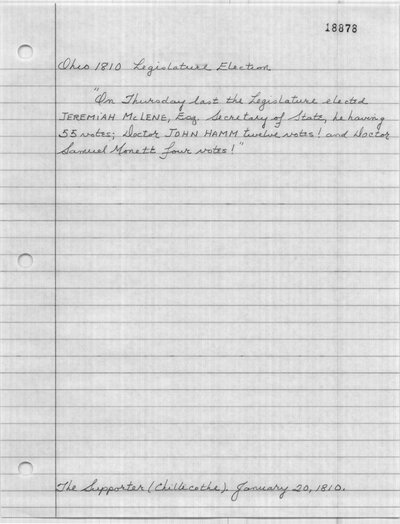 18878
Ohio 1810 Legislature Election
"On Thursday last the Legislature elected
JEREMIAH McLENE, Esq. Secretary of State, he having
55 votes; Doctor JOHN HAMM twelve votes! and Doctor
Samuel Monett four votes!"
The Supporter (Chillecothe). January 20, 1810.